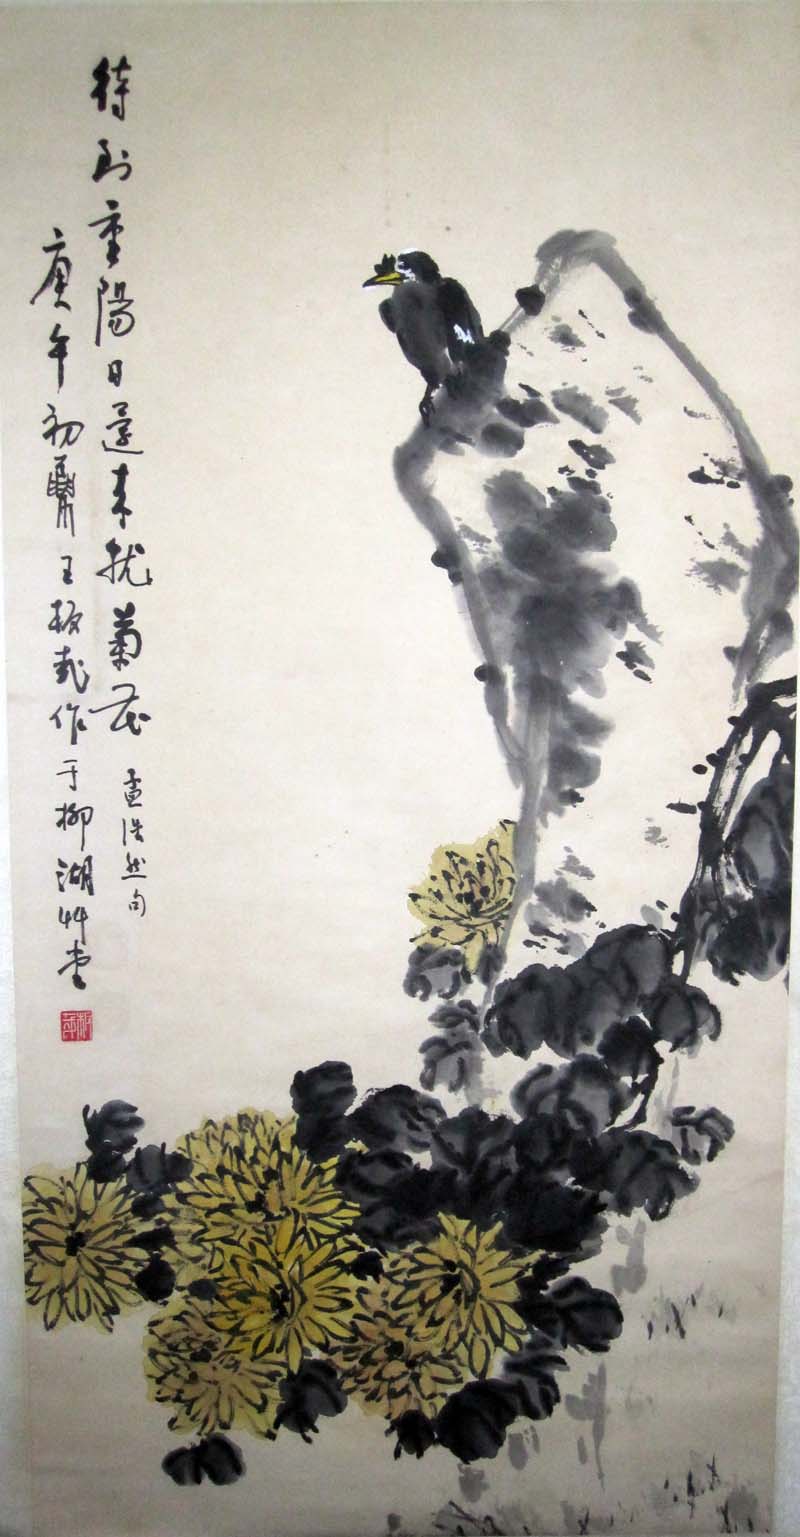 待到重陽日還來就菊花
孟浩然句
庚午初夏王板哉作于柳湖艸堂
板哉